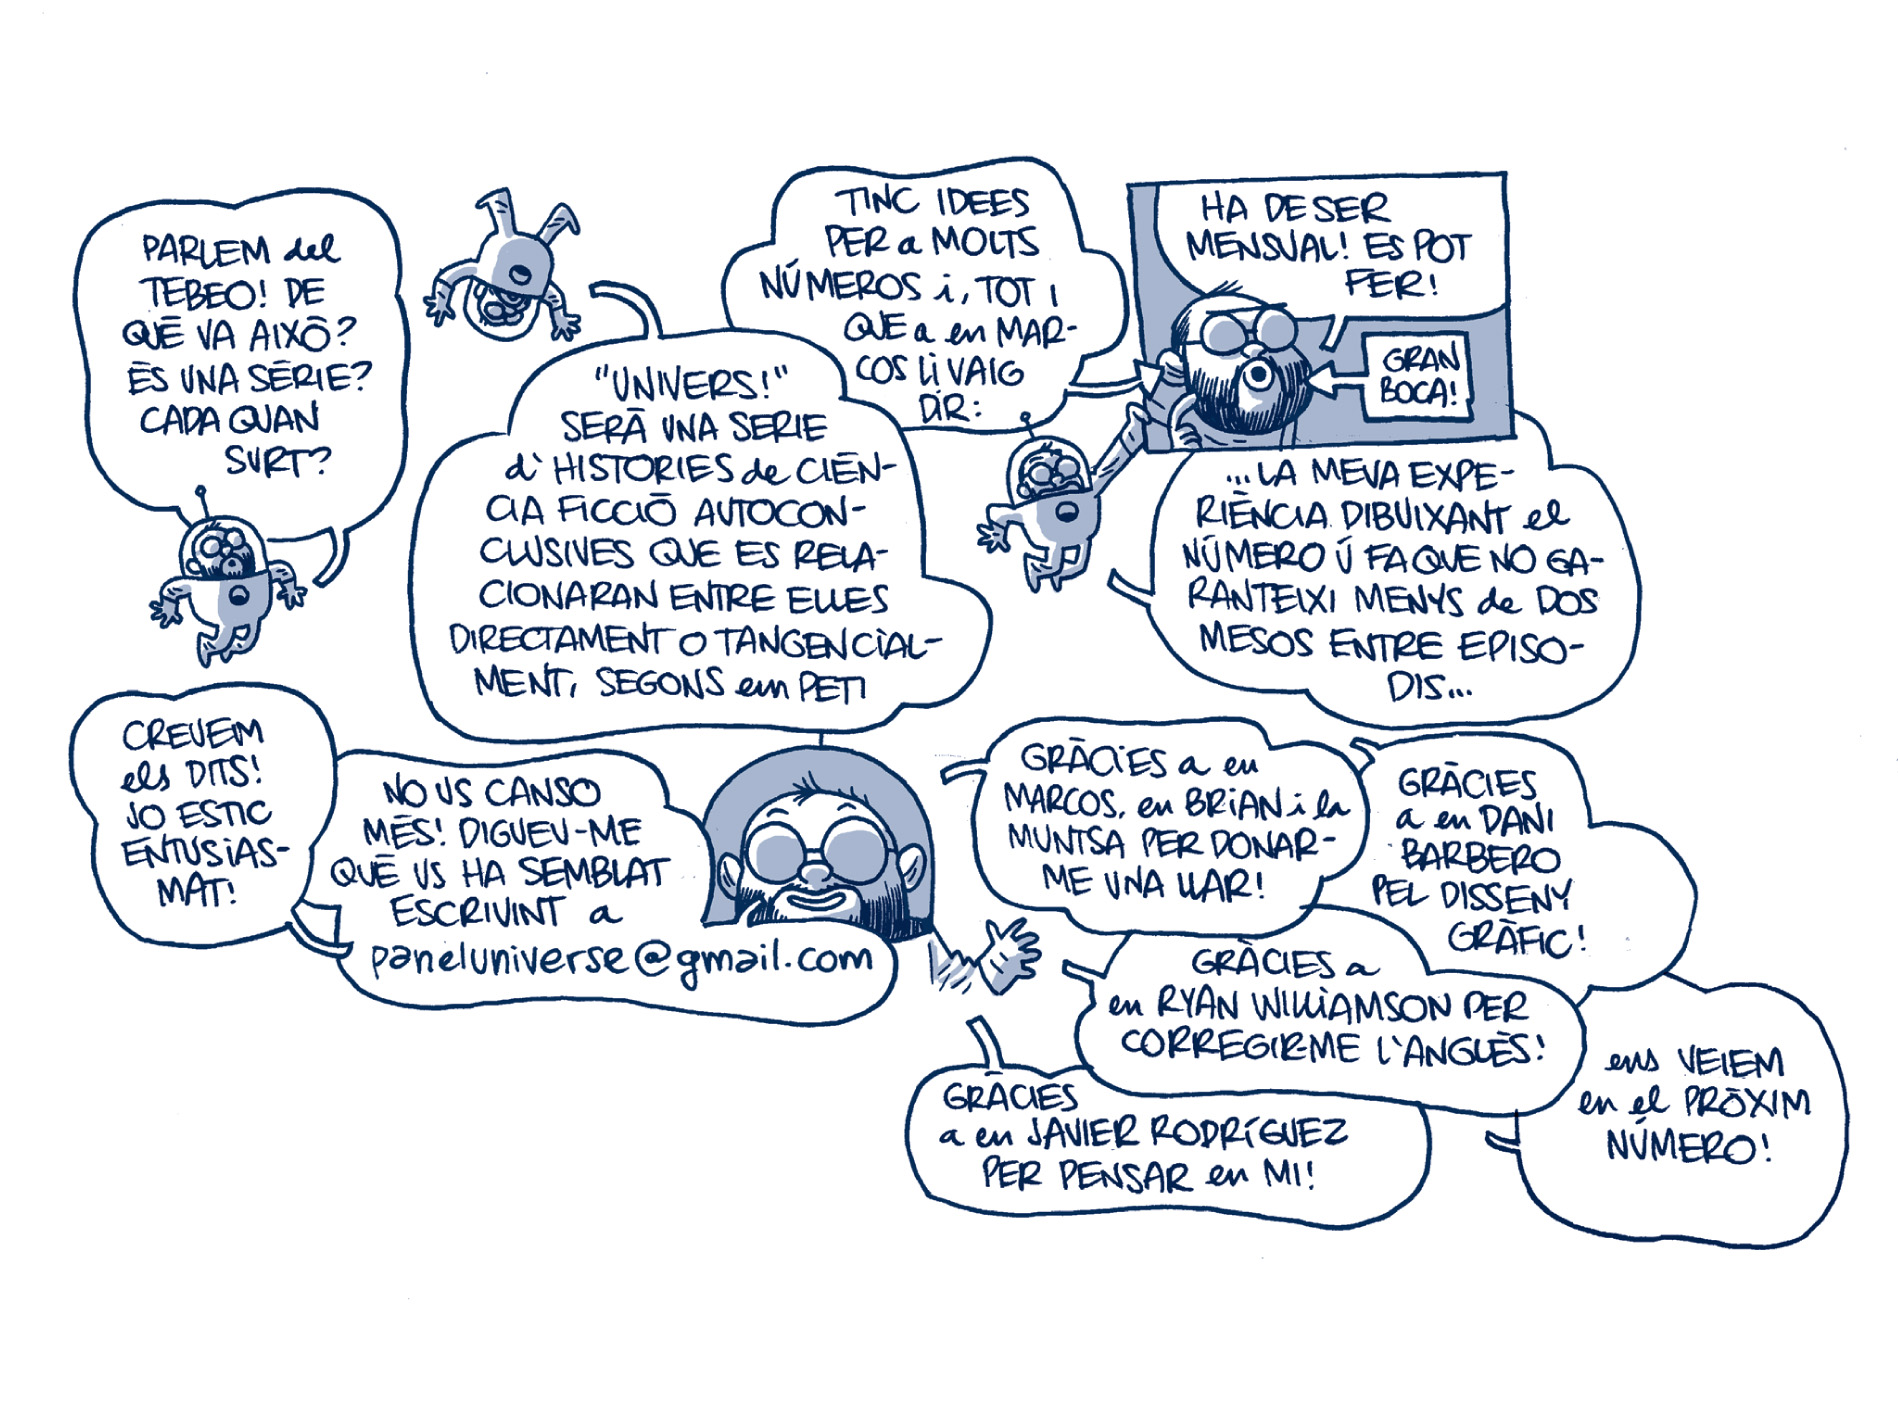 PARLEM del
TEBEO! DE
QUÈ VA AIXÒ?
ÉS UNA SÈRIE?
CADA QUAN
SURT?
"UNIVERS!"
SERÀ UNA SERIE
d'HISTORIES de CIÈN-
CIA FICCIÓ AUTOCON-
CLUSIVES QUE ES RELA-
CIONARAN ENTRE ELLES
DIRECTAMENT O TANGENCIAL-
MENT, SEGONS em PETI
TINC IDEES
PER a MOLTS
NÚMEROS i, TOT I
QUE a en MAR-
COS LI VAIG
DIR:
HA DE SER
MENSUAL! ES POT
FER!
GRAN
BOCA!
...LA MEVA EXPE-
RIÈNCIA DIBUIXANT el
NÚMERO Ú FA QUE NO GA-
RANTEIXI MENYS de DOS
MESOS ENTRE EPISO-
DIS...
CREUEM
els DITS!
JO ESTIC
ENTUSIAS-
MAT!
NO US CANSO
MÉS! DIGUEU-ME
QUÈ US HA SEMBLAT
ESCRIVINT a
paneluniverse@gmail.com
GRÀCIES a en
MARCOS, en BRIAN i la
MUNTSA PER DONAR-
ME UNA LLAR!
GRÀCIES
a en DANI
BARBERO
PEL DISSENY
GRÀFIC!
GRÀCIES a
en RYAN WILLIAMSON PER
CORREGIR-ME L'ANGLÈS!
GRÀCIES
a en JAVIER RODRÍGUEZ
PER PENSAR en MI!
ens VEIEM
en el PRÒXIM
NÚMERO!